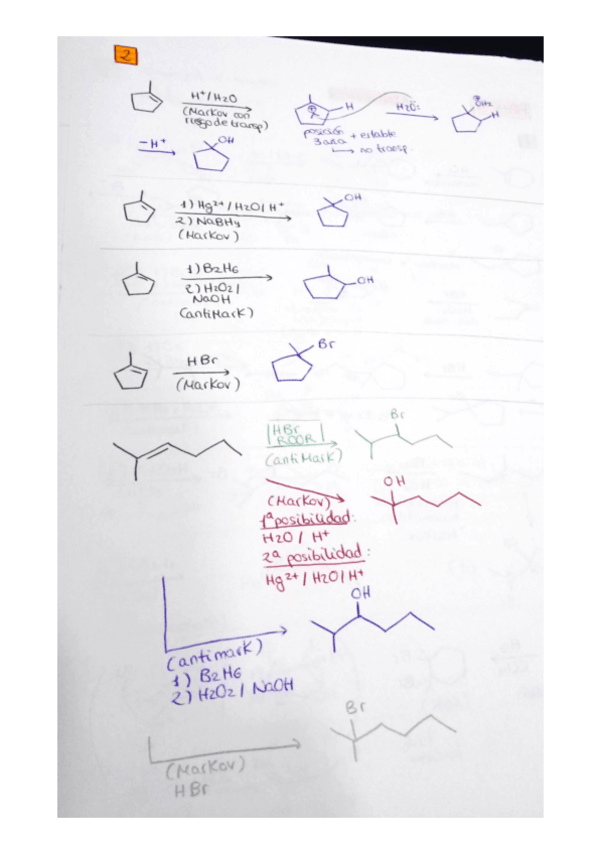 2
H+/H2O
(Markov con
riesgo de transp)
H
H2O:
⊕
OH2
H
posición + estable
3aria
↳ no transp.
-H+
OH
1) Hg2+/H2O/H+
2) NaBH4
(Markov)
OH
1) B2H6
2) H2O2/
NaOH
(antiMark)
OH
HBr
(Markov)
Br
HBr
ROOR
(antiMark)
Br
(Markov)
1ª posibilidad:
H2O / H+
2ª posibilidad:
Hg2+ / H2O / H+
OH
(antimark)
1) B2H6
2) H2O2 / NaOH
OH
(Markov)
HBr
Br